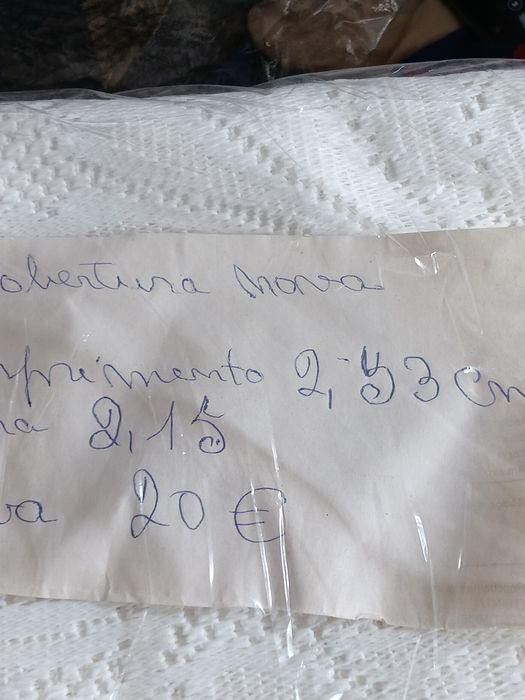 obertura nova
mprimento 2,53 cm
ra 2,15
va 20 €